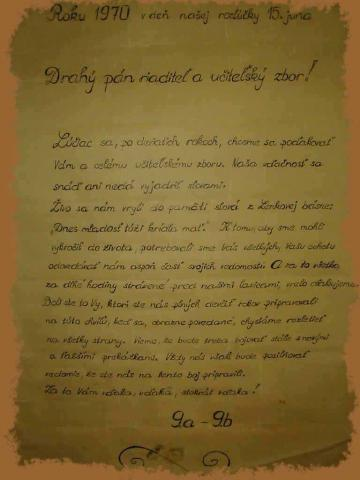 Roku 1970 v deň našej rozlúčky 15. júna
Drahý pán riaditeľ a učiteľský zbor!
Lúčiac sa, po deviatich rokoch, chceme sa poďakovať
Vám a celému učiteľskému zboru. Naša vďačnosť sa
snáď ani nedá vyjadriť slovami.
Živo sa nám vryli do pamäti slová z Lenkovej básne:
„Dnes mladosť túži krídla mať". K tomu, aby sme mohli
vykročiť do života, potrebovali sme Vás všetkých, Vašu ochotu
odovzdávať nám aspoň časť svojich vedomostí. A za to všetko
za dlhé hodiny strávené pred našimi lavicami, vrelo ďakujeme.
Boli ste to Vy, ktorí ste nás plných deväť rokov pripravovali
na túto chvíľu, keď sa, obrazne povedané, chystáme rozletieť
na všetky strany. Vieme, že bude treba bojovať stále s novými
a ťažšími prekážkami. Vždy nás však bude posilňovať
vedomie, že ste nás na tento boj pripravili.
Za to Vám vďaka, vďaka, stokrát vďaka!
9.a - 9.b